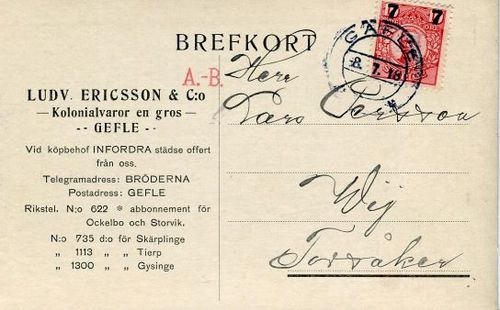 BREFKORT
A.-B.
LUDV. ERICSSON & C:o
— Kolonialvaror en gros —
-- GEFLE --
Vid köpbehof INFORDRA städse offert
från oss.
Telegramadress: BRÖDERNA
Postadress: GEFLE
Rikstel. N:o 622 * abbonnement för
Ockelbo och Storvik.
N:o 735 d:o för Skärplinge
„ 1113 „ „ Tierp
„ 1300 „ „ Gysinge
7 7
GÄFLE
8. 7. 18
Herr
Lars Persson
Wij
Torsåker